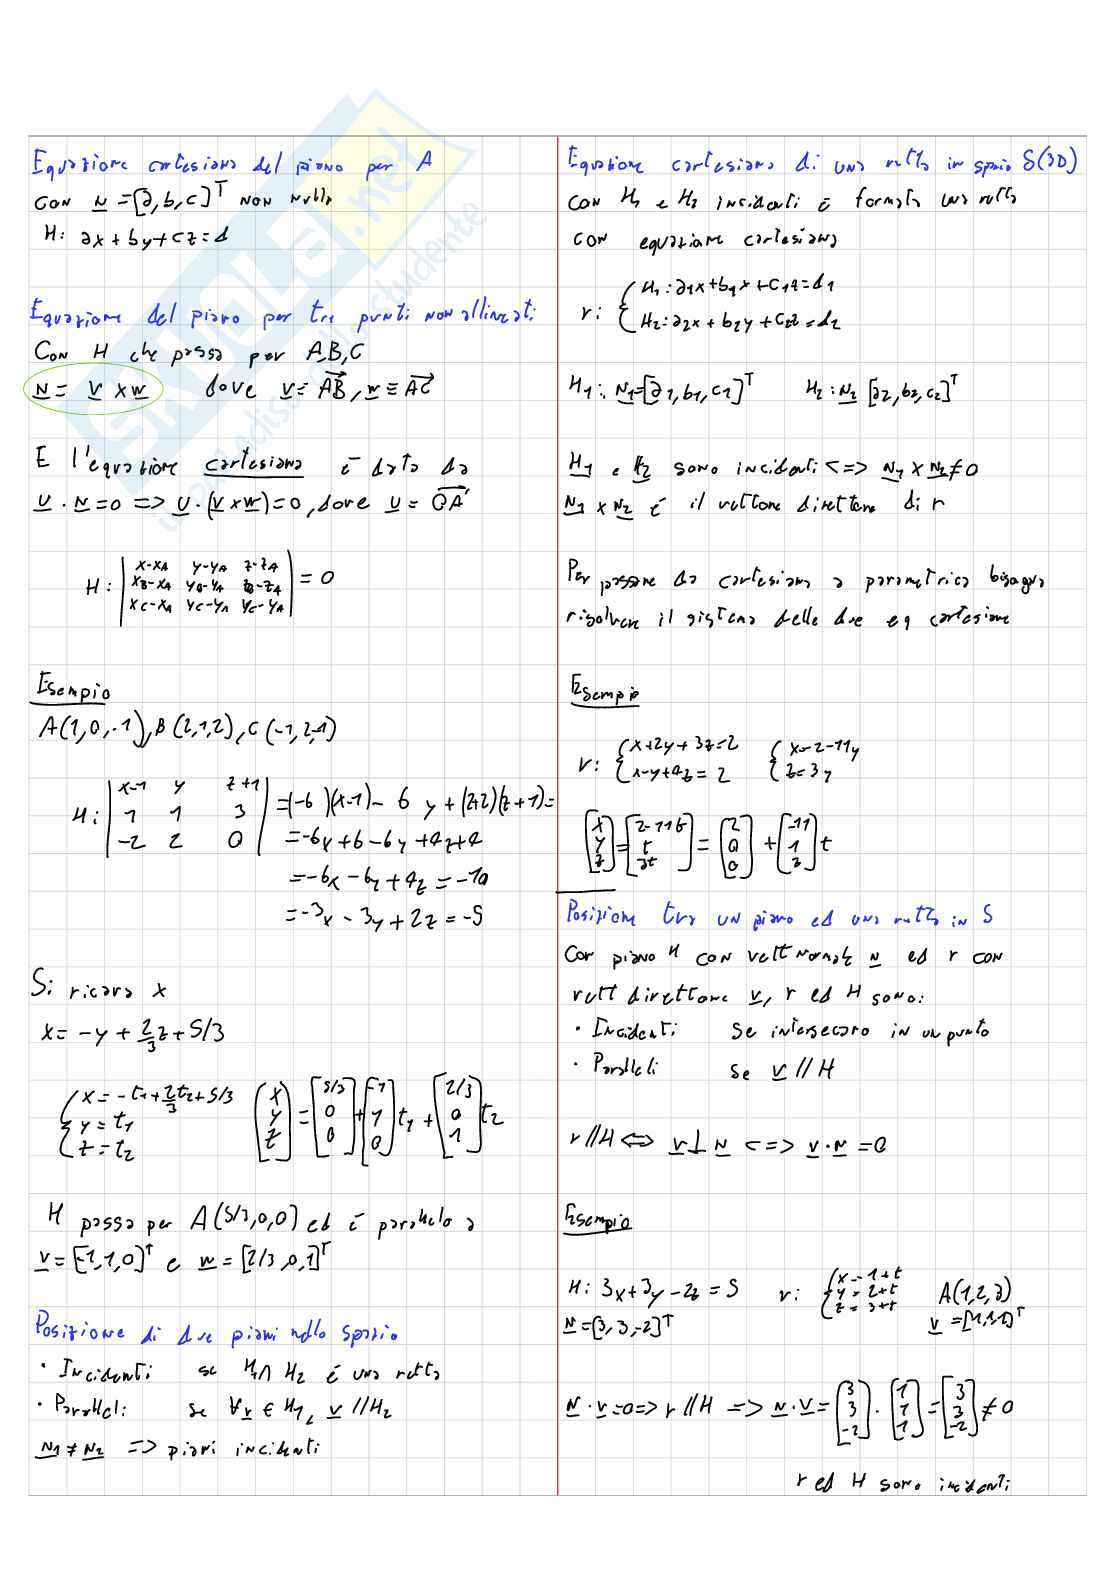 Equazione cartesiana del piano per A
con n = [a, b, c]ᵀ non nullo
H: ax + by + cz = d
Equazione del piano per tre punti non allineati:
Con H che passa per A,B,C
n = v × w dove v = AB, w = AC
E l'equazione cartesiana è data da
u · n = 0 => u · (v × w) = 0, dove u = OA
H: | x-xA y-yA z-zA |
| xB-xA yB-yA zB-zA | = 0
| xC-xA yC-yA yC-yA |
Esempio
A(1,0,-1), B(2,1,2), C(-1,2,-1)
H: | x-1 y z+1 |
| 1 1 3 | = (-6)(x-1) - 6y + (2+2)(z+1) =
| -2 2 0 | = -6x + 6 - 6y + 4z + 4
= -6x - 6y + 4z = -10
= -3x - 3y + 2z = -5
Si ricava x
x = -y + 2/3 z + 5/3
{ x = -t1 + 2/3 t2 + 5/3
y = t1
z = t2
[x y z] = [5/3 0 0] + [-1 1 0] t1 + [2/3 0 1] t2
H passa per A(5/3,0,0) ed è parallelo a
v = [-1,1,0]ᵀ e w = [2/3,0,1]ᵀ
Posizione di due piani nello spazio
• Incidenti se H1 ∩ H2 è una retta
• Paralleli: se ∀v ∈ H1, v // H2
n1 ≠ n2 => piani incidenti
Equazione cartesiana di una retta in spazio S(3D)
con H1 e H2 incidenti è formata una retta
con equazione cartesiana
r: { H1: a1x + b1x + c1z = d1
H2: a2x + b2y + c2z = d2
H1: n1 = [a1, b1, c1]ᵀ H2: n2 [a2, b2, c2]ᵀ
H1 e H2 sono incidenti <=> n1 × n2 ≠ 0
n1 × n2 è il vettore direttore di r
Per passare da cartesiana a parametrica bisogna
risolvere il sistema delle due eq cartesiane
Esempio
r: { x + 2y + 3z = 2 { x = 2 - 11y
x - y + 4z = 2 z = 3y
[x y z] = [2-11t t 3t] = [2 0 0] + [-11 1 3] t
Posizione tra un piano ed una retta in S
Con piano H con vett normale n ed r con
vett direttore v, r ed H sono:
• Incidenti se intersecano in un punto
• Paralleli se v // H
r // H <=> v ⊥ n <=> v · n = 0
Esempio
H: 3x + 3y - 2z = 5 r: { x = 1 + t
y = 2 + t
z = 3 + t
A(1,2,3)
n = [3, 3, -2]ᵀ v = [1,1,1]ᵀ
n · v = 0 => r // H => n · v = [3 3 -2] · [1 1 1] = [3 3 -2] ≠ 0
r ed H sono incidenti
SKUOLA.net